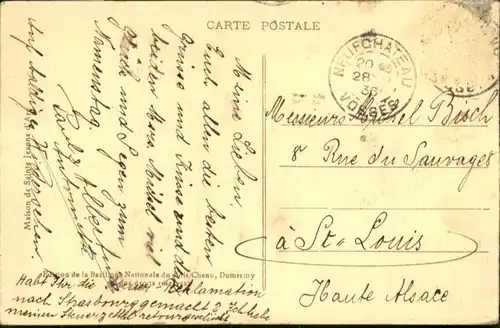 CARTE POSTALE
Meine Lieben
Euch allen die besten
Grüsse und Küsse und den
beiden Mess. Michel viel
Glück und Segen zum
Namenstag.
Auf baldiges Wiedersehen.
Maison de Sainte Jeanne
Edition de la Basilique Nationale du Bois Chenu, Domremy
Habt Ihr die Reklamation
nach Strasbourg gemacht? Ich habe
meinen Steuerzettel retourgeschickt
NEUFCHATEAU
20
28
36
VOSGES
Messieurs Michel Bisch
8 Rue du Sauvage
à St Louis
Haute Alsace